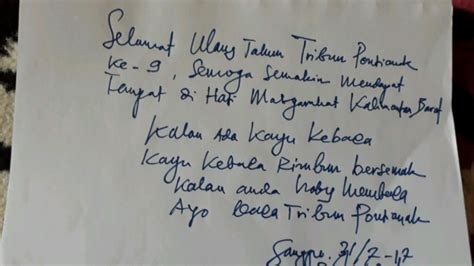 Selamat Ulang Tahun Tribun Pontianak
ke-9, Semoga Semakin Mendapat
Tempat di Hati Masyarakat Kalimantan Barat
Kalau Ada Kayu Kebaca
Kayu Kebaca Rimbun bersemak
Kalau anda Hoby Membaca
Ayo baca Tribun Pontianak
31/7-17